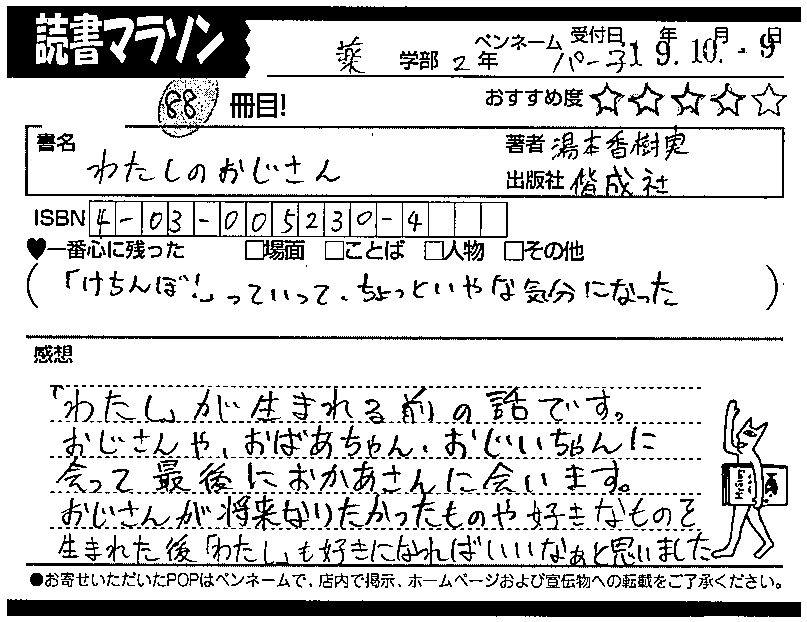 読書マラソン
薬 学部 2年 ペンネーム パー子 受付日 19年10月-9日
88 冊目! おすすめ度 ★★★★☆
書名 わたしのおじさん
著者 湯本香樹実
出版社 偕成社
ISBN 4-03-005230-4
♥一番心に残った □場面 □ことば □人物 □その他
(「けちんぼ!」っていって、ちょっといやな気分になった)
感想
「わたし」が生まれる前の話です。
おじさんや、おばあちゃん、おじいちゃんに
会って最後におかあさんに会います。
おじさんが将来なりたかったものや好きなものを
生まれた後「わたし」も好きになればいいなぁと思いました
●お寄せいただいたPOPはペンネームで、店内で掲示、ホームページおよび宣伝物への転載をご了承ください。